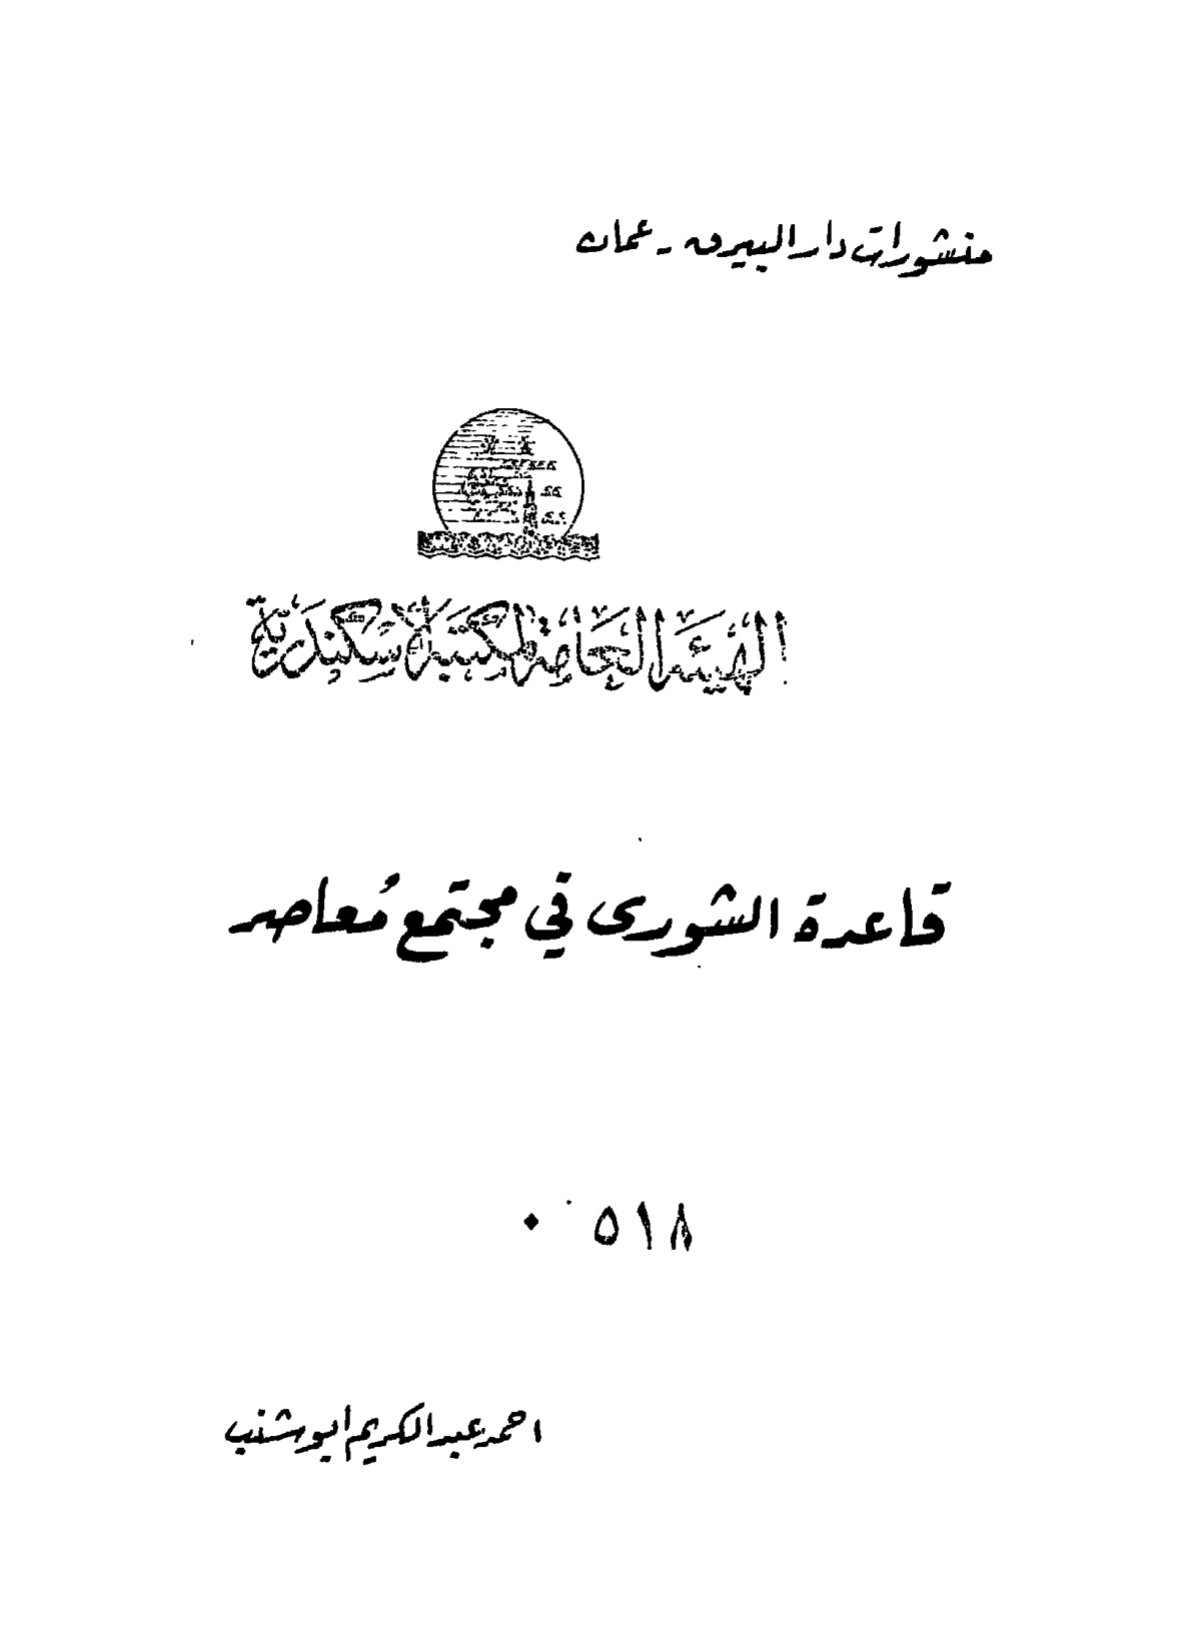 منشورات دار البيرق - عمان
الهيئة العامة لمكتبة الإسكندرية
قاعدة الشورى في مجتمع مُعاصر
٨١٥ ٠
احمد عبد الكريم ابو شنب